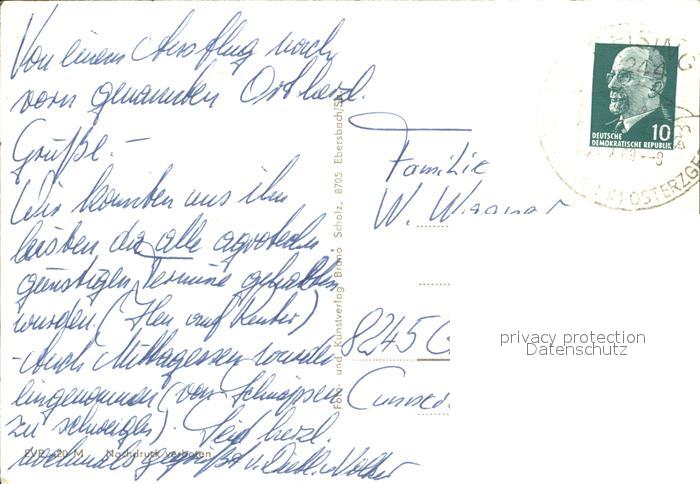 Von einem Ausflug nach
vorn genannten Ort herzl.
Grüße. –
Wir konnten uns ihn
leisten, da alle agrotechn
günstigen Termine gehalten
wurden. (Heu auf Reuter)
- Auch Mittagessen wurde
eingenommen (von Schnäpsen
zu schweigen). Seid herzl.
nochmals gegrüßt v.
Familie
W. Wagner
8245 G
DEUTSCHE
DEMOKRATISCHE REPUBLIK
10
OSTERZGE
Foto- und Kunstverlag Bruno Scholz, 8705 Ebersbach/Sa.
EVP -,20 M Nachdruck verboten
privacy protection
Datenschutz